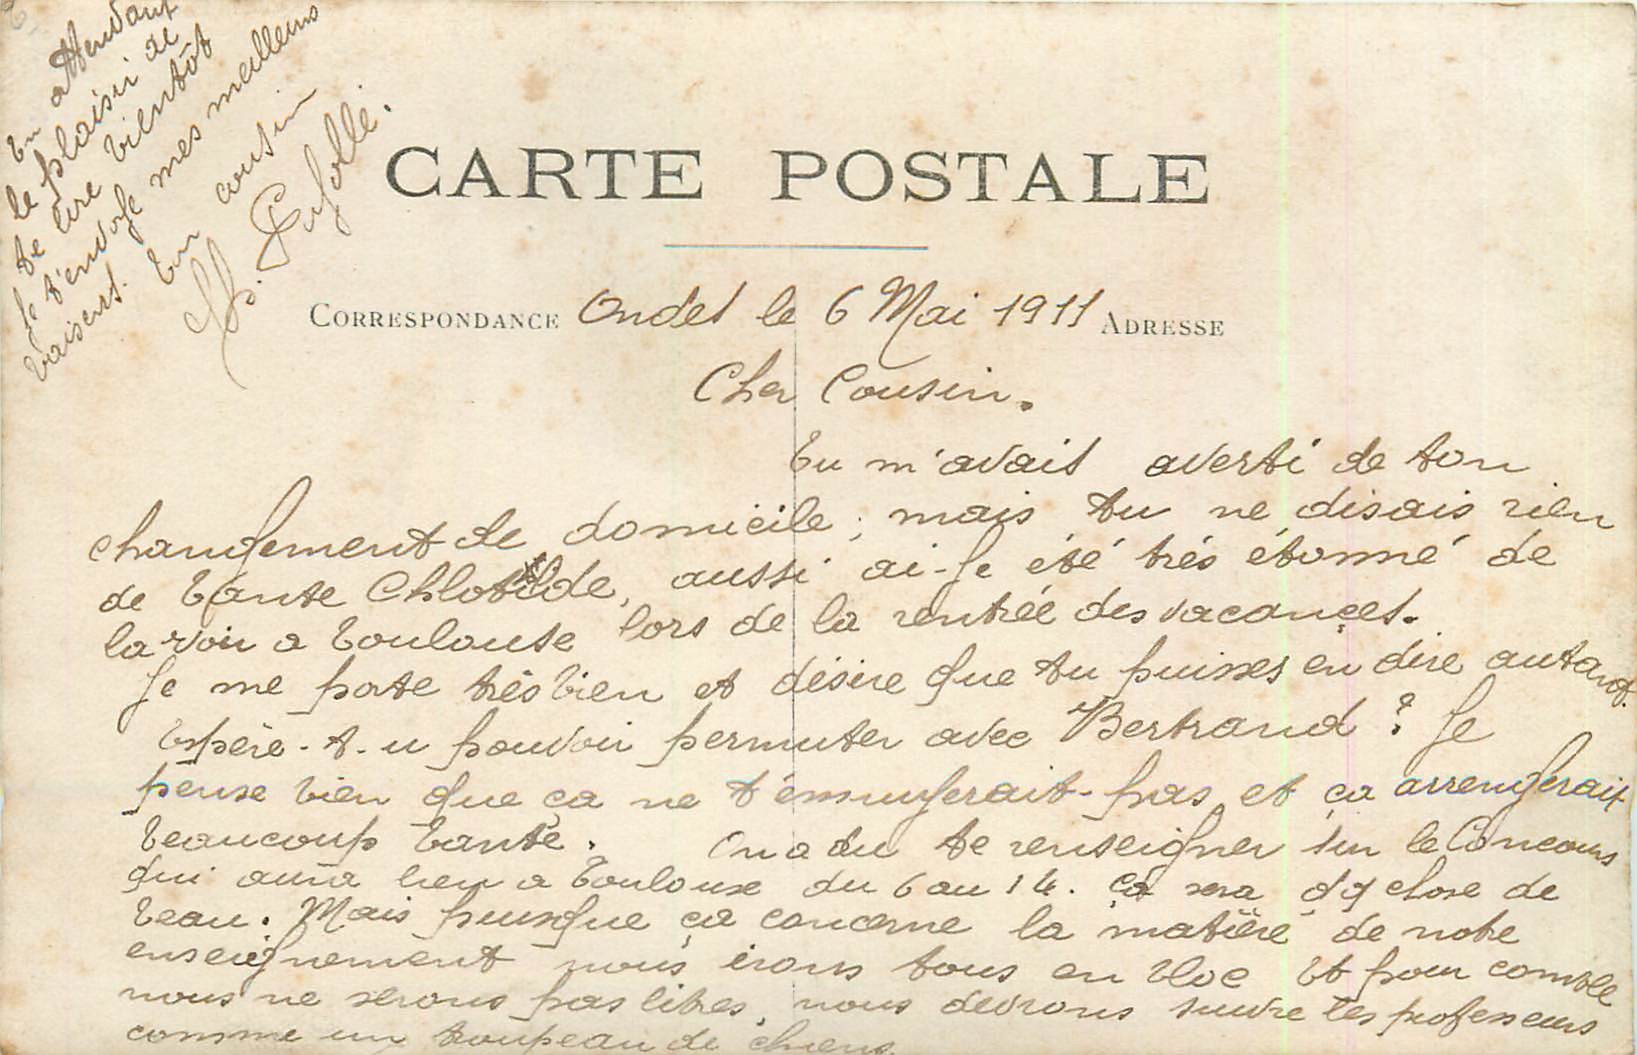 CARTE POSTALE
CORRESPONDANCE Ondes le 6 Mai 1911 ADRESSE
Cher Cousin.
Tu m'avais averti de ton
changement de domicile, mais tu ne disais rien
de Tante Chlotilde, aussi ai-je été très étonné de
la voir a Toulouse lors de la rentrée des vacances.
Je me porte très bien et désire que tu puisses en dire autant.
Espère-t-u pouvoir permuter avec Bertrand ? Je
pense bien que ça ne t'ennuyerait-pas et ça arrengerait
beaucoup Tante. On a du te renseigner sur le Concours
qui aura lieu a Toulouse du 6 au 14. ça sera qq chose de
beau. Mais puisque ça concerne la matière de notre
enseignement nous irons tous en bloc Et pour comble
nous ne serons pas libres, nous devrons suivre les professeurs
comme un troupeau de chiens
En attendant
le plaisir de
te lire bientôt
Je t'envoje mes meilleurs
baisers. Ton cousin
Pujolle.